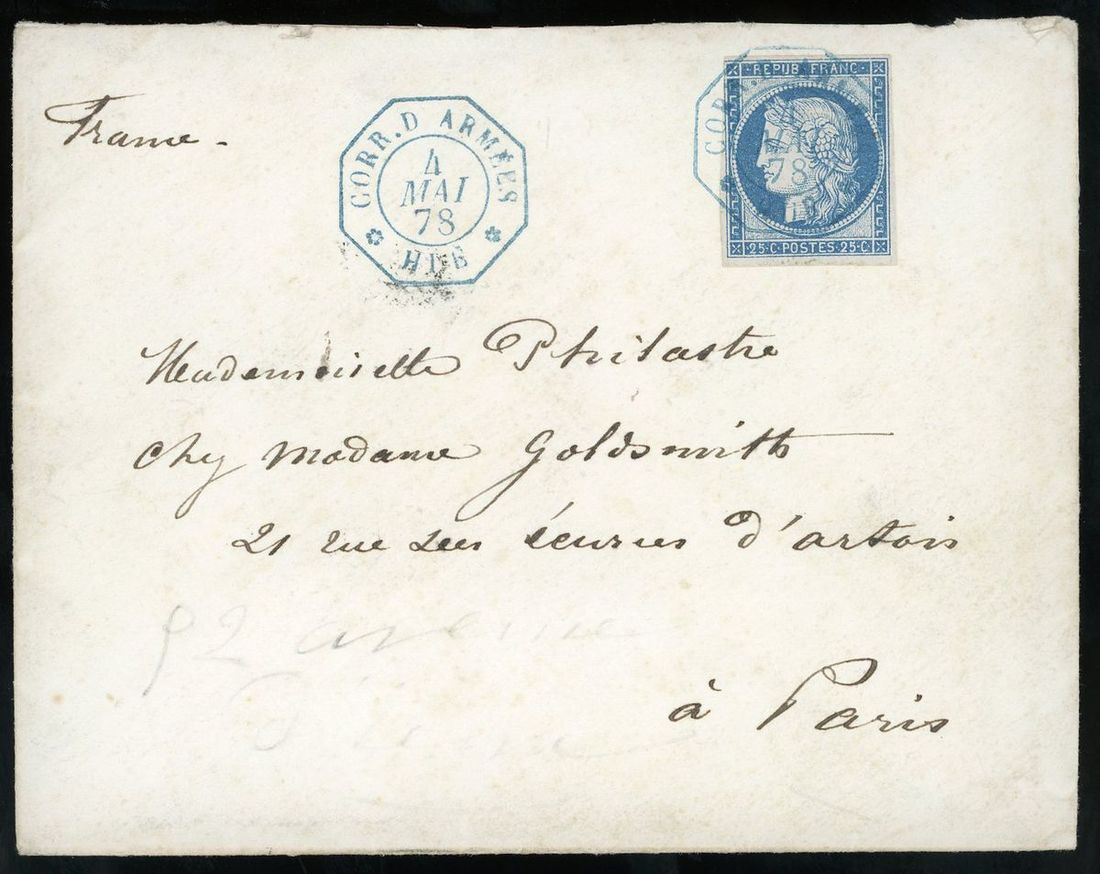 France -
CORR. D ARMÉES
4
MAI
78
HUÉ
REPUB FRANC
COR
MAI
78
25·C·POSTES·25·C
Mademoiselle Philastre
chez madame Goldsmith
21 rue des écuries d'artois
52 avenue
à Paris